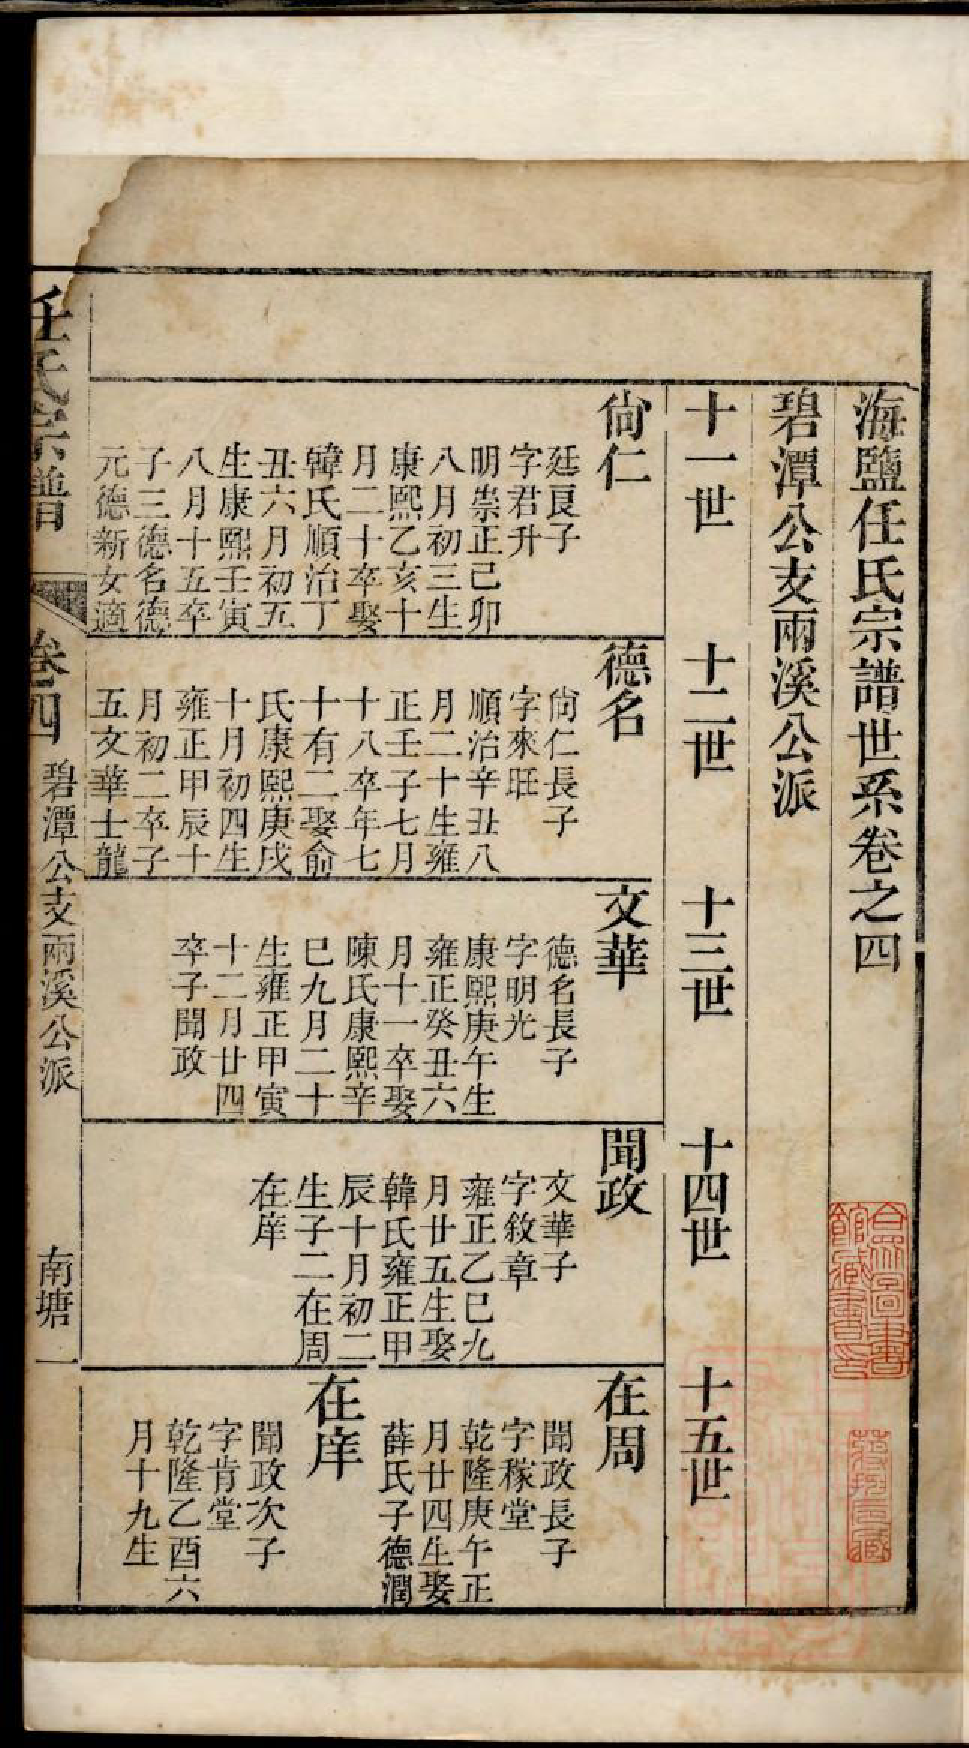 海鹽任氏宗譜世系卷之四
碧潭公支兩溪公派
十一世
十二世
十三世
十四世
十五世
尙仁
廷良子
字君升
明崇正己卯
八月初三生
康熙乙亥十
月二十卒娶
韓氏順治丁
丑六月初五
生康熙壬寅
八月十五卒
子三德名德
元德新女適
德名
尙仁長子
字來旺
順治辛丑八
月二十生雍
正壬子七月
十八卒年七
十有二娶俞
氏康熙庚戌
十月初四生
雍正甲辰十
月初二卒子
五文華士龍
文華
德名長子
字明光
康熙庚午生
雍正癸丑六
月十一卒娶
陳氏康熙辛
巳九月二十
生雍正甲寅
十二月廿四
卒子聞政
聞政
文華子
字敘章
雍正乙巳九
月廿五生娶
韓氏雍正甲
辰十月初二
生子二在周
在庠
在周
聞政長子
字稼堂
乾隆庚午正
月廿四生娶
薛氏子德潤
在庠
聞政次子
字肯堂
乾隆乙酉六
月十九生
任氏宗譜
卷四
碧潭公支兩溪公派
南塘一
合眾圖書館藏書印